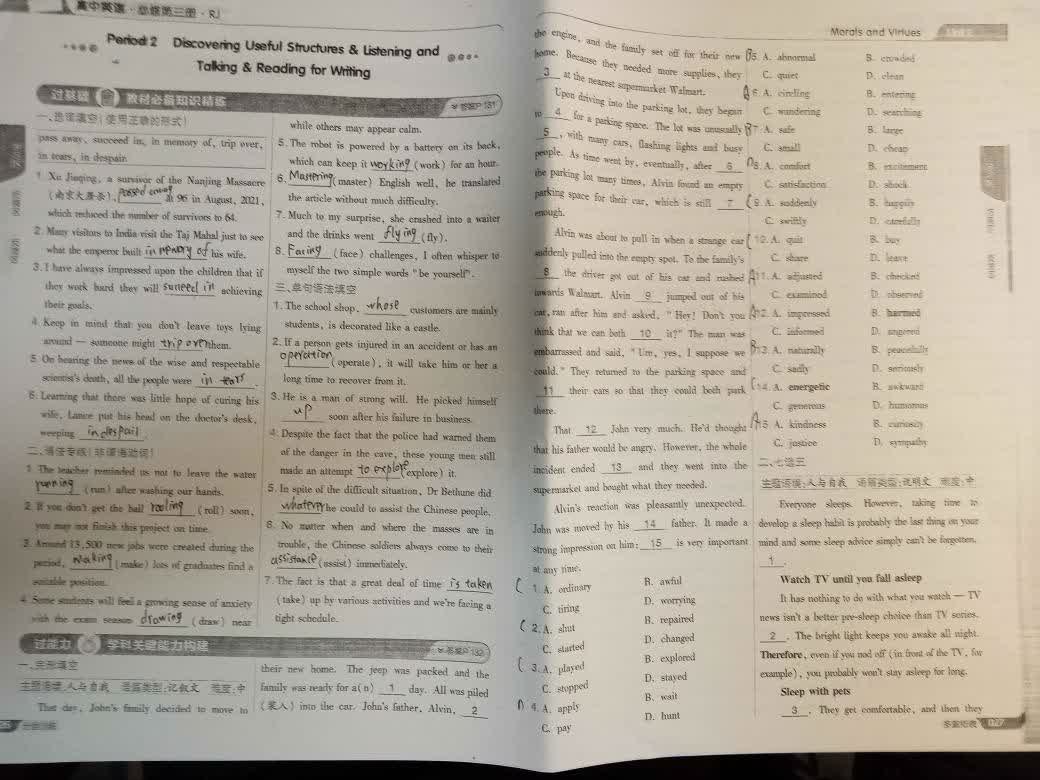 高中英语·必修第三册·RJ
Period 2 Discovering Useful Structures & Listening and
Talking & Reading for Writing
过基础 教材必备知识精练
答案P131
一、选词填空(使用正确的形式)
pass away, succeed in, in memory of, trip over,
in tears, in despair
1. Xu Jiaqing, a survivor of the Nanjing Massacre
(南京大屠杀), passed away at 96 in August, 2021,
which reduced the number of survivors to 64.
2. Many visitors to India visit the Taj Mahal just to see
what the emperor built in memory of his wife.
3. I have always impressed upon the children that if
they work hard they will succeed in achieving
their goals.
4. Keep in mind that you don't leave toys lying
around — someone might trip over them.
5. On hearing the news of the wise and respectable
scientist's death, all the people were in tears.
6. Learning that there was little hope of curing his
wife, Lance put his head on the doctor's desk,
weeping in despair.
二、语法专练(非谓语动词)
1. The teacher reminded us not to leave the water
running (run) after washing our hands.
2. If you don't get the ball rooling (roll) soon,
you may not finish this project on time.
3. Around 13,500 new jobs were created during the
period, making (make) lots of graduates find a
suitable position.
4. Some students will feel a growing sense of anxiety
with the exam season drawing (draw) near
while others may appear calm.
5. The robot is powered by a battery on its back,
which can keep it working (work) for an hour.
6. Mastering (master) English well, he translated
the article without much difficulty.
7. Much to my surprise, she crashed into a waiter
and the drinks went flying (fly).
8. Facing (face) challenges, I often whisper to
myself the two simple words "be yourself".
三、单句语法填空
1. The school shop, whose customers are mainly
students, is decorated like a castle.
2. If a person gets injured in an accident or has an
operation (operate), it will take him or her a
long time to recover from it.
3. He is a man of strong will. He picked himself
up soon after his failure in business.
4. Despite the fact that the police had warned them
of the danger in the cave, these young men still
made an attempt to explore (explore) it.
5. In spite of the difficult situation, Dr Bethune did
whatever he could to assist the Chinese people.
6. No matter when and where the masses are in
trouble, the Chinese soldiers always come to their
assistance (assist) immediately.
7. The fact is that a great deal of time is taken
(take) up by various activities and we're facing a
tight schedule.
过能力 学科关键能力构建
答案P132
一、完形填空
主题语境:人与自我 语篇类型:记叙文 难度:中
That day, John's family decided to move to
their new home. The jeep was packed and the
family was ready for a(n) 1 day. All was piled
(装入) into the car. John's father, Alvin, 2
Morals and Virtues
the engine, and the family set off for their new
home. Because they needed more supplies, they
3 at the nearest supermarket Walmart.
Upon driving into the parking lot, they began
to 4 for a parking space. The lot was unusually
5, with many cars, flashing lights and busy
people. As time went by, eventually, after 6
the parking lot many times, Alvin found an empty
parking space for their car, which is still 7
enough.
Alvin was about to pull in when a strange car
suddenly pulled into the empty spot. To the family's
8 the driver got out of his car and rushed
towards Walmart. Alvin 9 jumped out of his
car, ran after him and asked, "Hey! Don't you
think that we can both 10 it?" The man was
embarrassed and said, "Um, yes, I suppose we
could." They returned to the parking space and
11 their cars so that they could both park
there.
That 12 John very much. He'd thought
that his father would be angry. However, the whole
incident ended 13 and they went into the
supermarket and bought what they needed.
Alvin's reaction was pleasantly unexpected.
John was moved by his 14 father. It made a
strong impression on him: 15 is very important
at any time.
C 1. A. ordinary B. awful
C. tiring D. worrying
C 2. A. shut B. repaired
C. started D. changed
C 3. A. played B. explored
C. stopped D. stayed
D 4. A. apply B. wait
C. pay D. hunt
B 5. A. abnormal B. crowded
C. quiet D. clean
A 6. A. circling B. entering
C. wandering D. searching
B 7. A. safe B. large
C. small D. cheap
D 8. A. comfort B. excitement
C. satisfaction D. shock
C 9. A. suddenly B. happily
C. swiftly D. carefully
C 10. A. quit B. buy
C. share D. leave
A 11. A. adjusted B. checked
C. examined D. observed
A 12. A. impressed B. harmed
C. informed D. angered
B 13. A. naturally B. peacefully
C. sadly D. seriously
C 14. A. energetic B. awkward
C. generous D. humorous
A 15. A. kindness B. curiosity
C. justice D. sympathy
二、七选五
主题语境:人与自我 语篇类型:说明文 难度:中
Everyone sleeps. However, taking time to
develop a sleep habit is probably the last thing on your
mind and some sleep advice simply can't be forgotten.
1.
Watch TV until you fall asleep
It has nothing to do with what you watch — TV
news isn't a better pre-sleep choice than TV series.
2. The bright light keeps you awake all night.
Therefore, even if you nod off (in front of the TV, for
example), you probably won't stay asleep for long.
Sleep with pets
3. They get comfortable, and then they
027